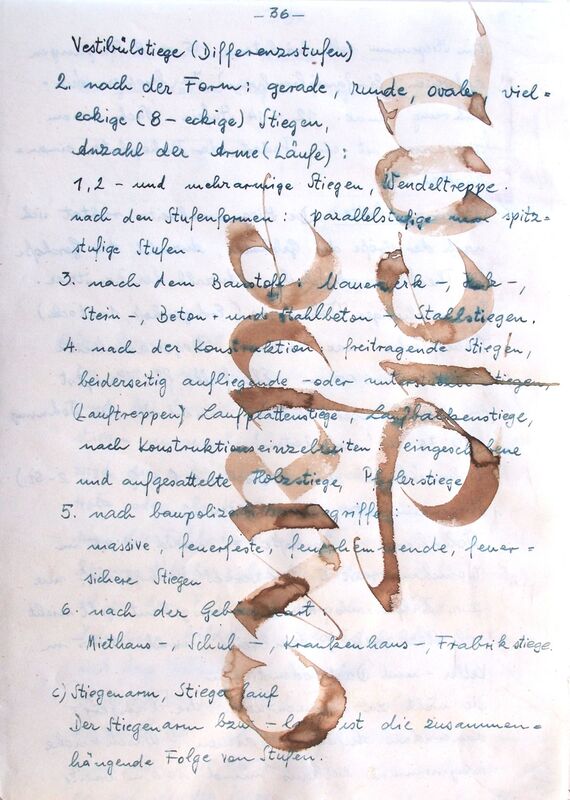 – 36 –
Vestibülstiege (Differenzstufen)
2. nach der Form: gerade, runde, ovale, viel=
eckige (8-eckige) Stiegen,
Anzahl der Arme (Läufe):
1,2- und mehrarmige Stiegen, Wendeltreppe.
nach den Stufenformen parallelstufige spitz=
stufige Stufen
3. nach dem Baustoff: Mauerwerk-,
Stein-, Beton- und Stahlbeton- Stahlstiegen.
4. nach der Konstruktion freitragende Stiegen,
beiderseitig aufliegende -oder Stiegen,
(Lauftreppen) Laufplattenstiege, Laufbalkenstiege,
nach Konstruktionseinzelheiten eingeschobene
und aufgesattelte Holzstiege, Pfeilerstiege
5. nach
massive, feuerfeste, feuerhemmende, feuer=
sichere Stiegen
6. nach der Gebäudeart
Miethaus-, Schul-, Krankenhaus-, Frabrikstiege.
c) Stiegenarm, Stiegenlauf
Der Stiegenarm bzw. -lauf ist die zusammen=
hängende Folge von Stufen.